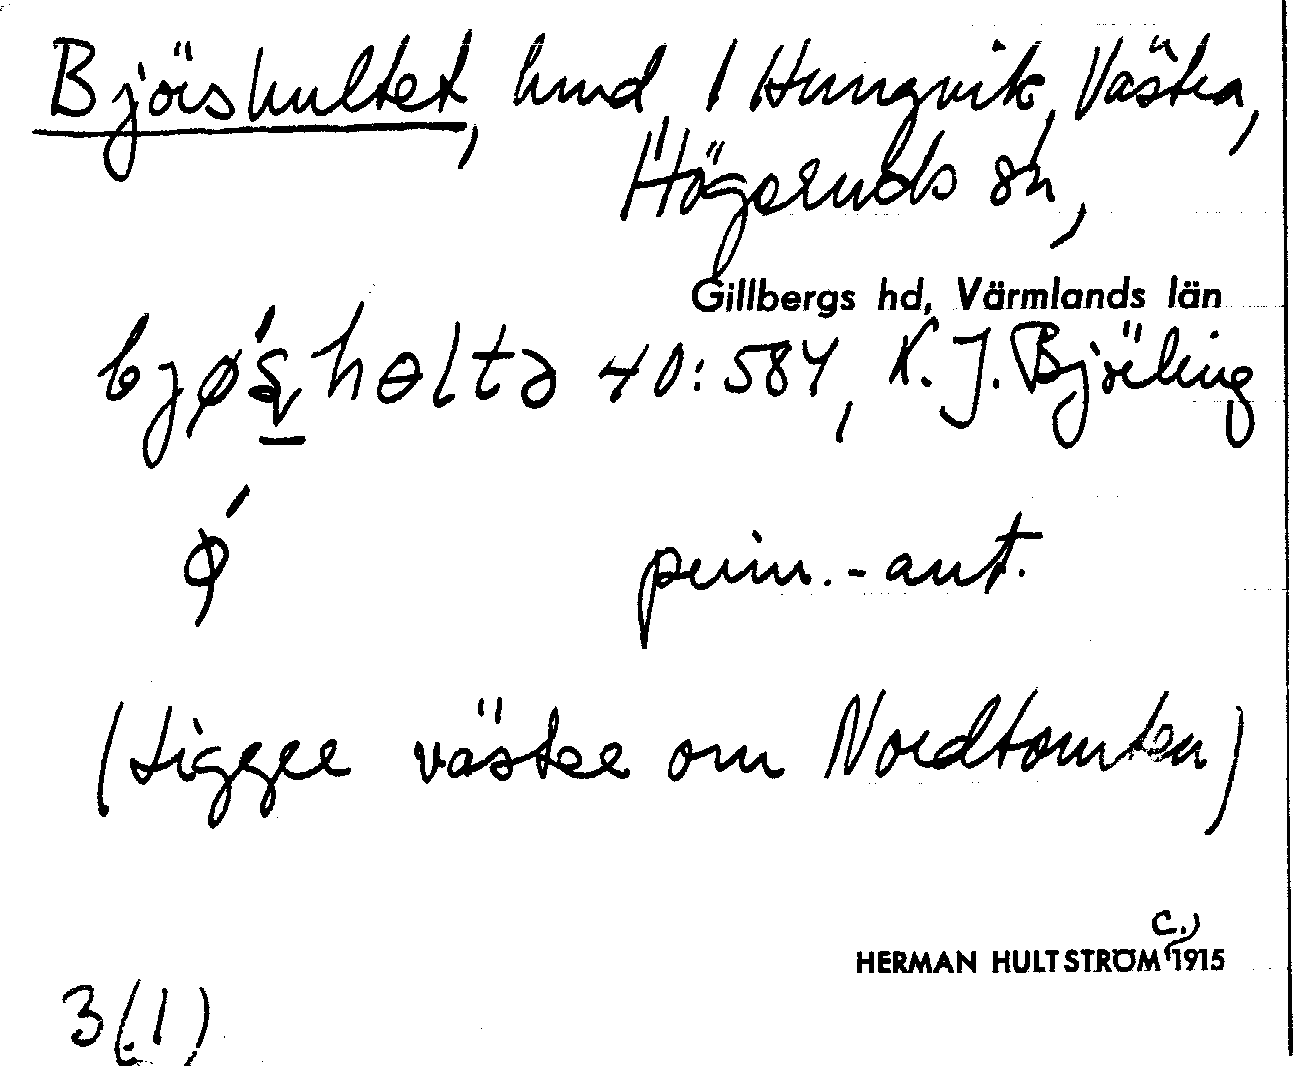 Björshultet, lund, 1 Hungvik, Västra,
Högeruds sn,
Gillbergs hd, Värmlands län
40:584, K. J. Björling
ǿ prim.-ant.
(Ligger väster om Nordtomten)
HERMAN HULTSTRÖM c. 1915
3(1)